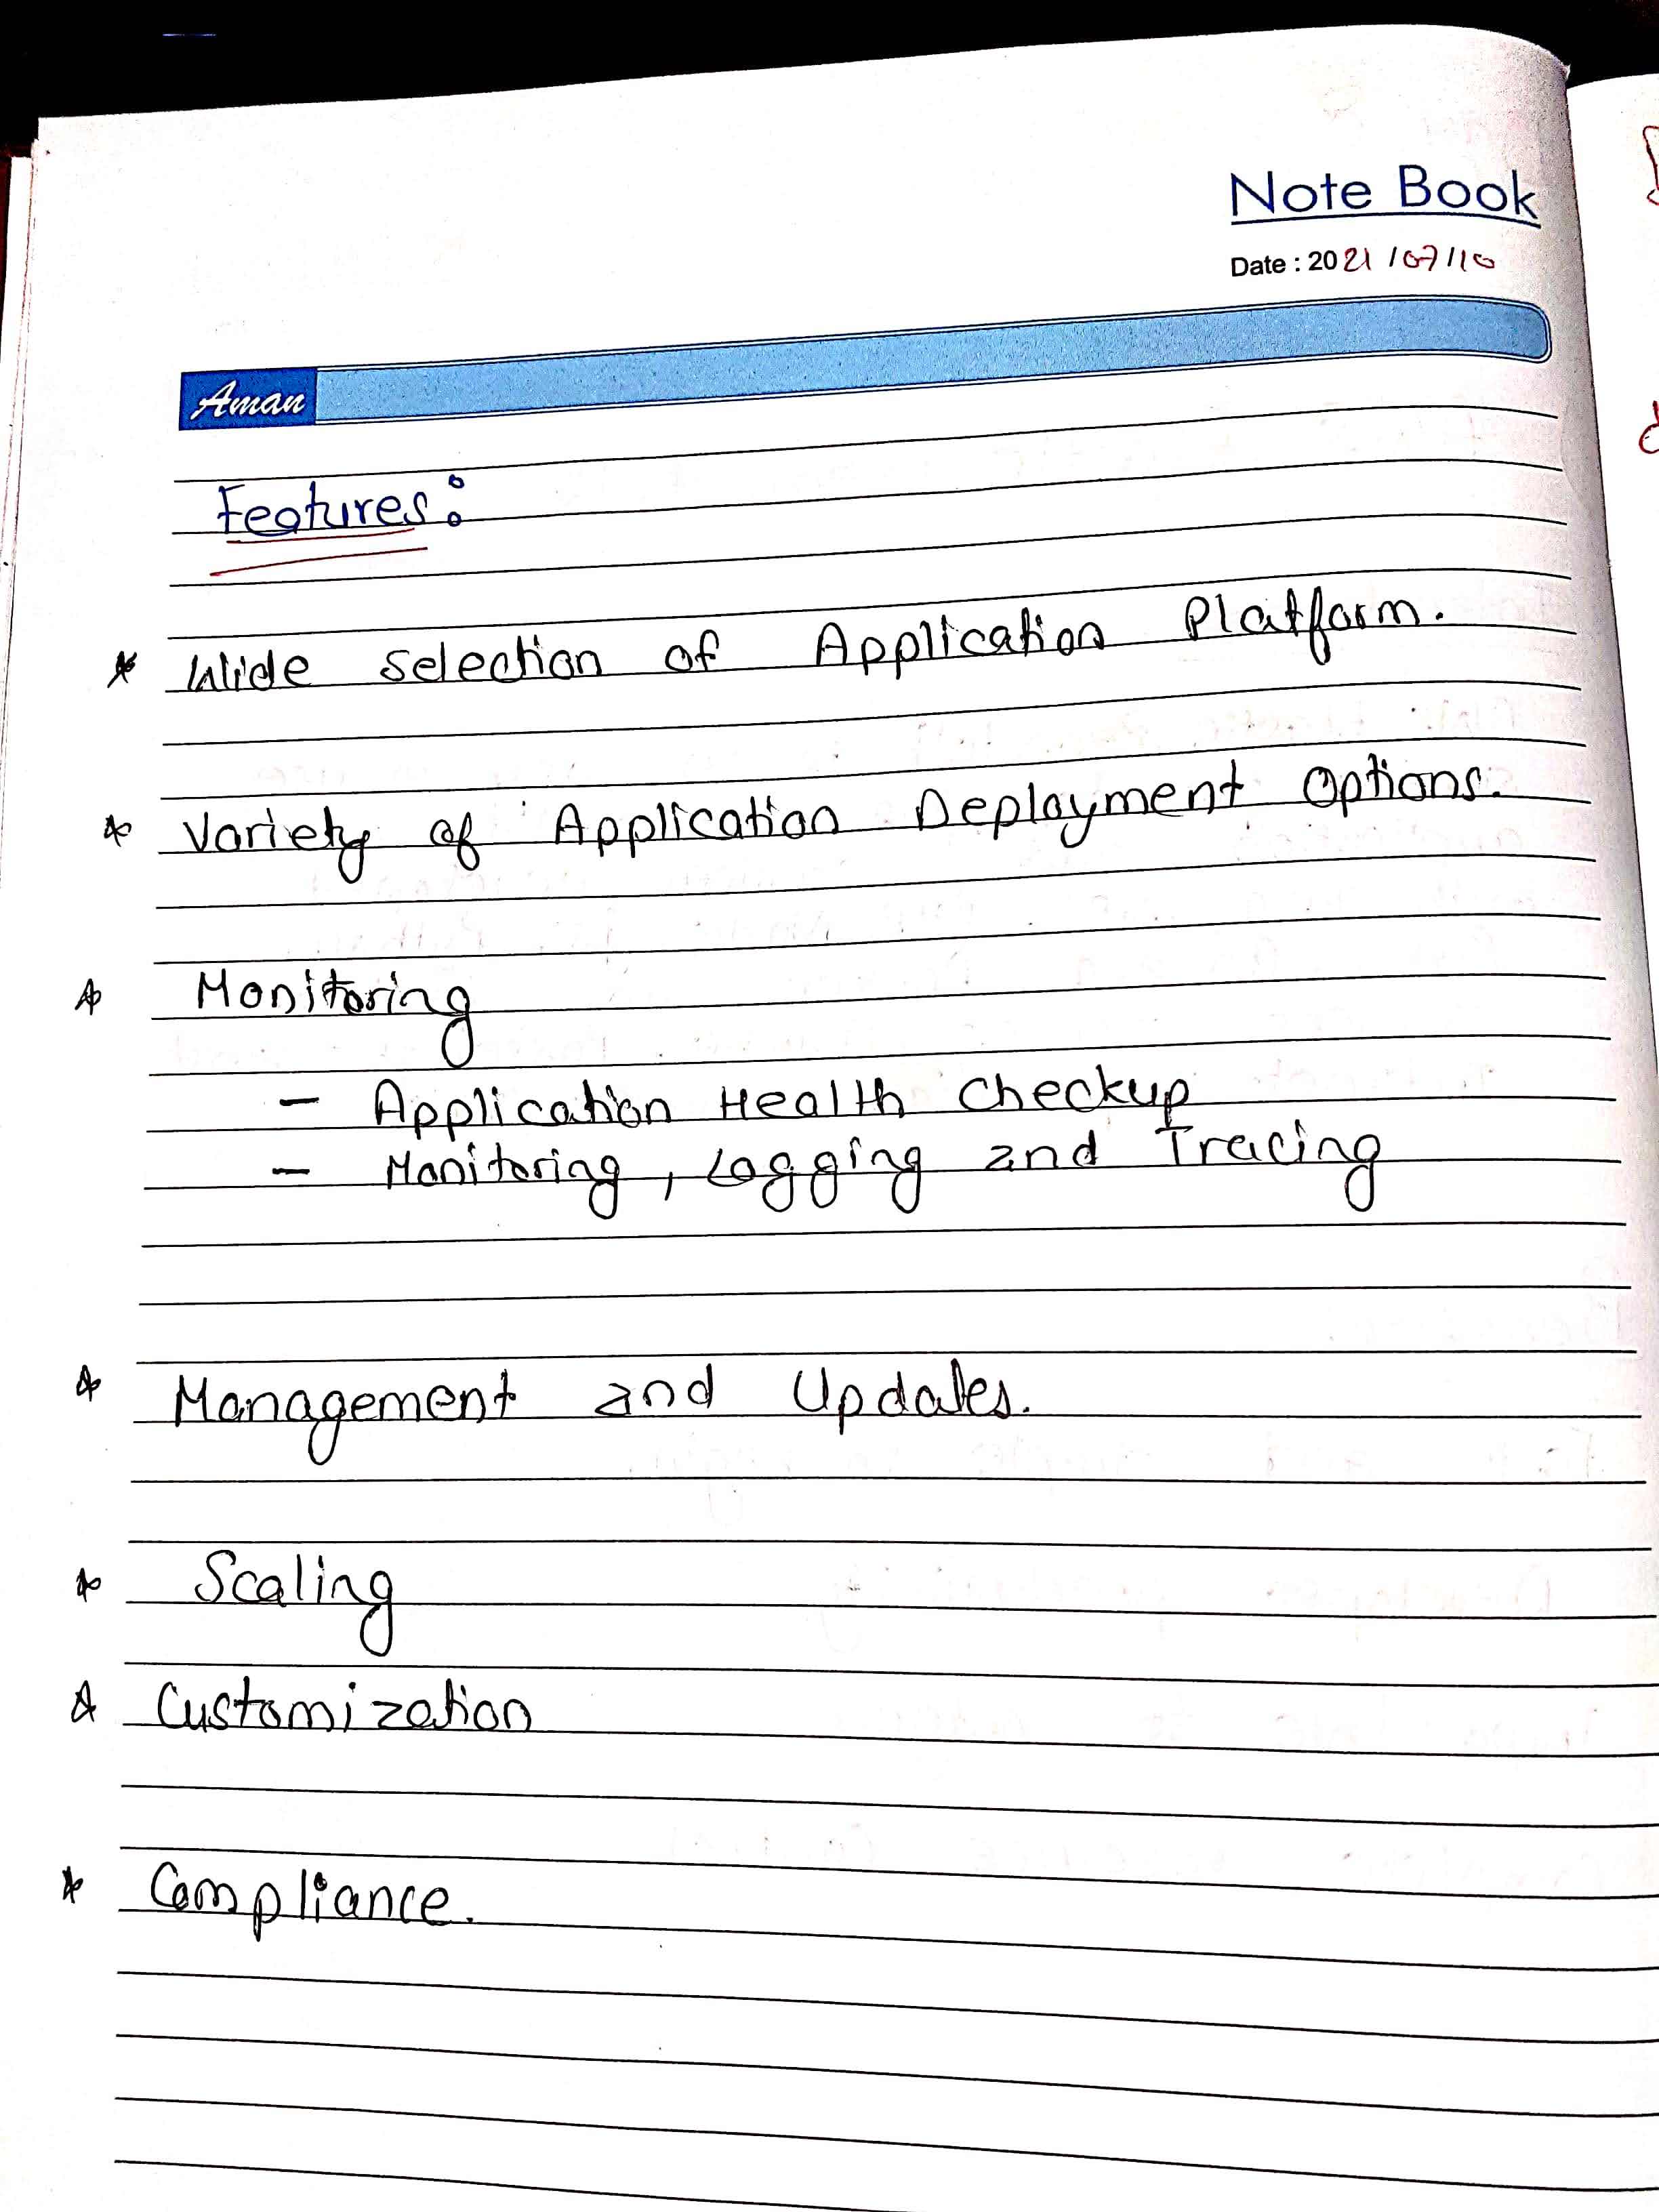 Note Book
Date : 2021/07/10
Aman
Features:
* Wide Selection of Application Platform.
* Variety of Application Deployment Options.
* Monitoring
- Application Health Checkup
- Monitoring, Logging and Tracing
* Management and Updates.
* Scaling
* Customization
* Compliance.